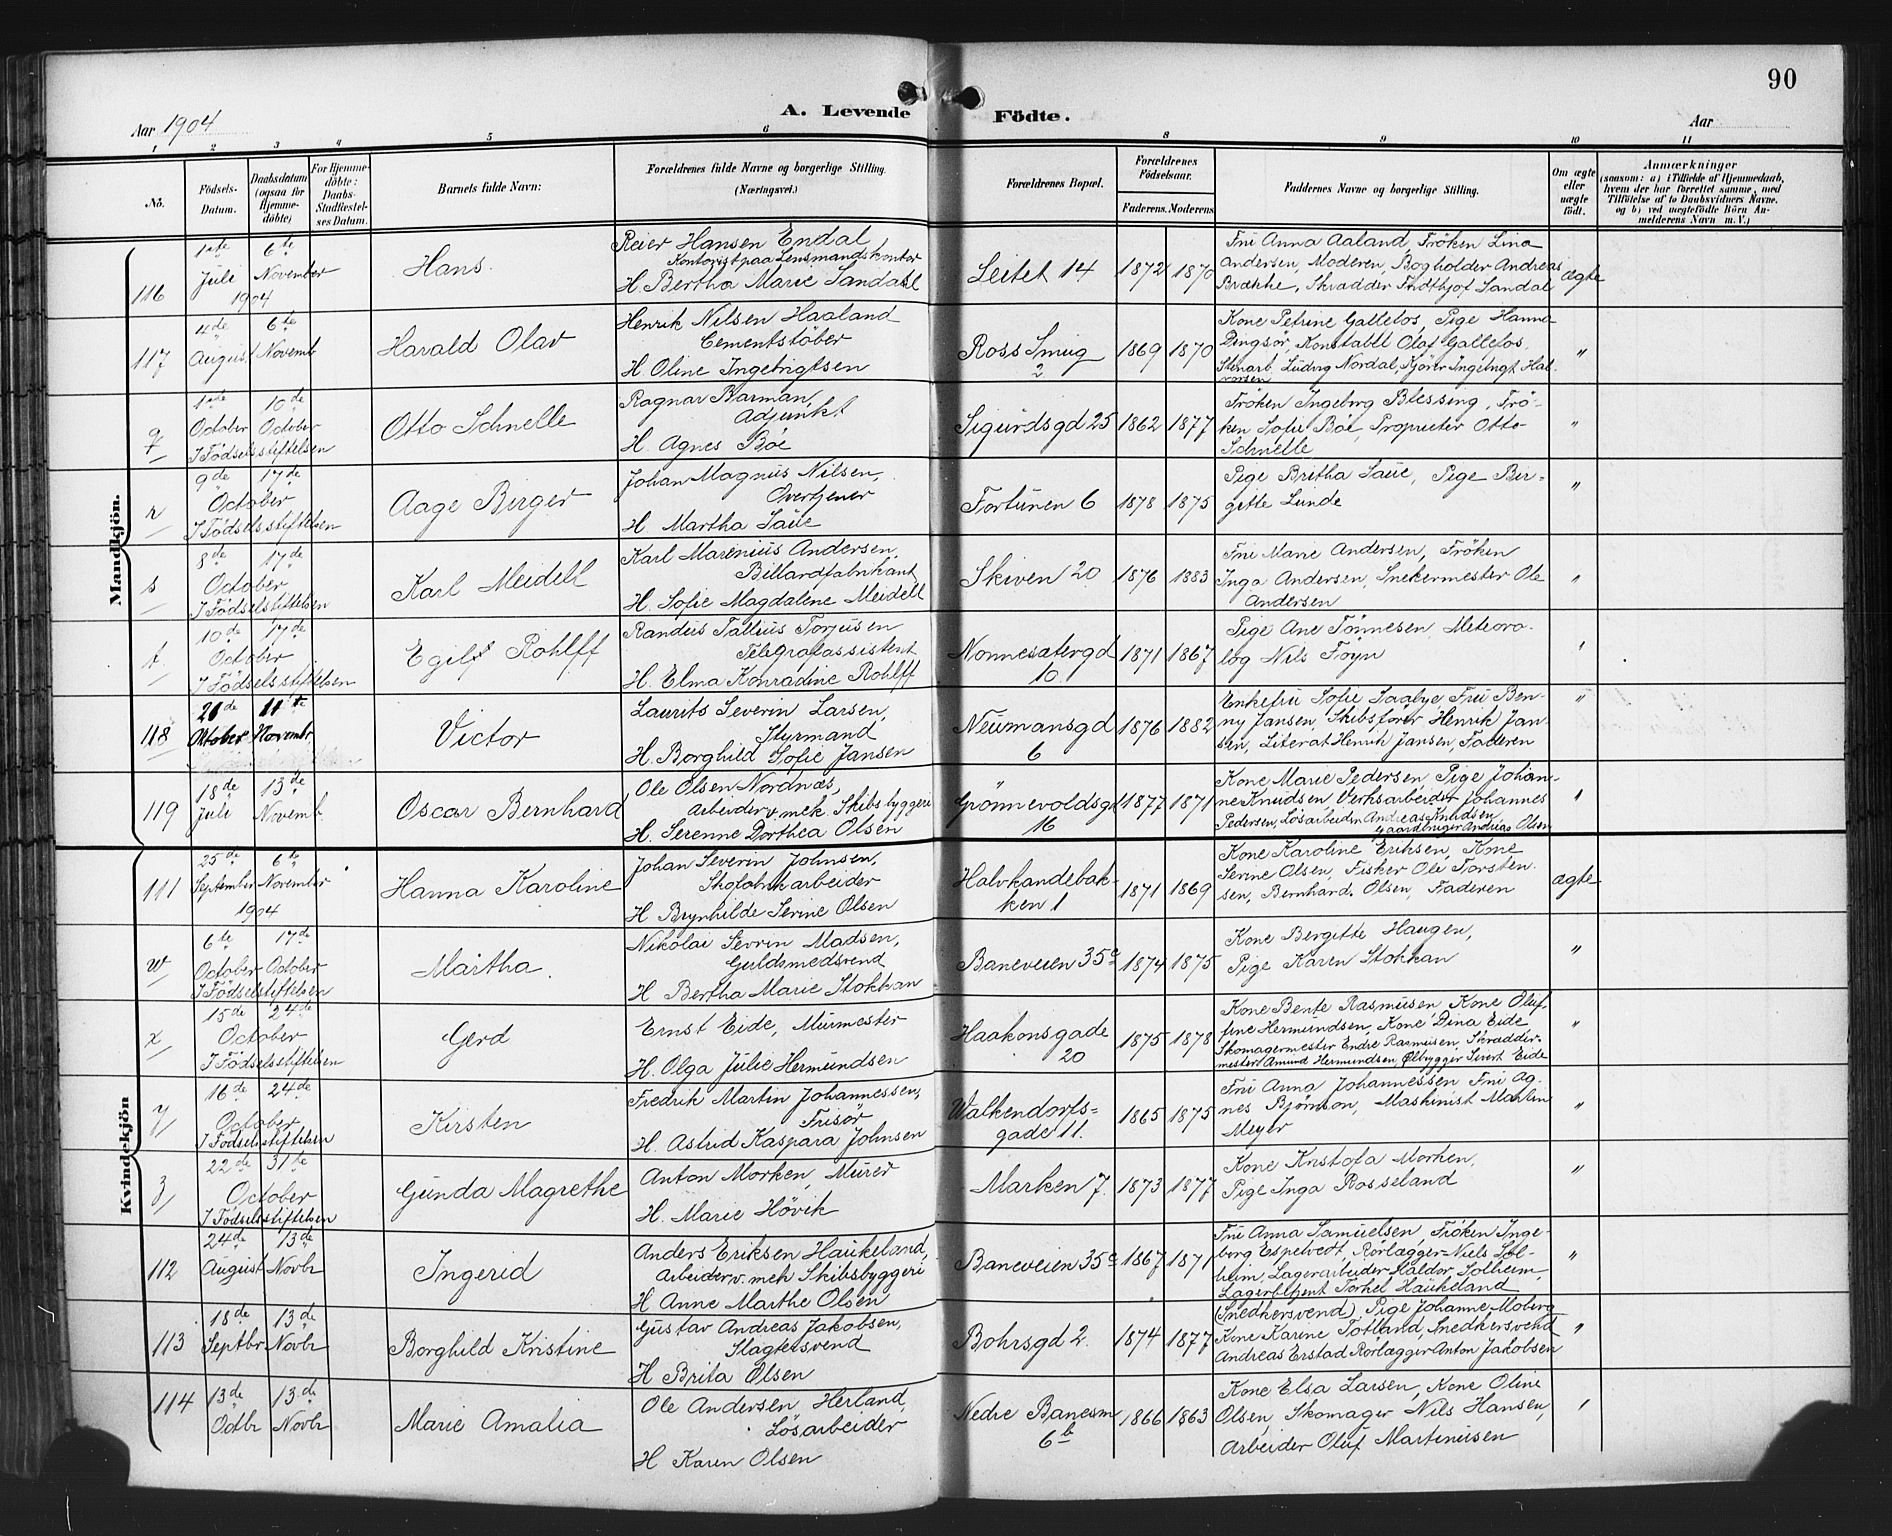 90
A. Levende Födte.
Aar 1904
Aar
1 2 3 4 5 6 8 9 10 11
No. Födsels-Datum. Daabsdatum (ogsaa for Hjemme-döbte) For Hjemme-döbte: Daabs-Stadfæstel-ses Datum. Barnets fulde Navn: Forældrenes fulde Navne og borgerlige Stilling. (Næringsvei.) Forældrenes Bopæl. Forældrenes Födselsaar. Faderens. Moderens Faddernes Navne og borgerlige Stilling. Om ægte eller uægte födt. Anmærkninger (saasom: a) i Tilfælde af Hjemmedaab, hvem der har forrettet samme, med Tilföielse af to Daabsvidners Navne. og b) ved uægtefödte Börn An-melderens Navn m. V.)
Mandkjön.
116 1ste Juli 1904 6te November Hans.
Reier Hansen Endal
Kontorist paa Lensmandskontor
H. Bertha Marie Sandahl
Leitet 14 1872 1870
Fru Anna Aaland, Fröken Lina
Andersen, Moderen, Bogholder Andreas
Brække, Skrædder Fridtjof Sandal
ægte
117 4de August 6te Novemb Harald Olav
Henrik Nilsen Haaland
Cementstöber
H Oline Ingebrigtsen
Ross Smug 2 1869 1870
Kone Petrine Gallefos, Pige Hanna
Dingsör, Konstabel Olaf Gallefos,
Stenarb. Ludvig Nordal, Kjörer Ingebrigt Hal-
vorsen
"
q 1ste October 10de October I Födselsstiftelsen Otto Schnelle
Ragnar Barman,
Adjunkt
H. Agnes Böe
Sigurdsgd 25 1862 1877
Fröken Ingeborg Blessing, Frö-
ken Sofie Böe, Proprietær Otto
Schnelle
"
r 9de 17de October I Födselsstiftelsen Aage Birger
Johan Magnus Nilsen,
Overtjener
H Martha Saue
Fortunen 6 1878 1875
Pige Britha Saue, Pige Bir-
gitte Lunde
"
s 8de 17de October I Födselsstiftelsen Karl Meidell
Karl Marenius Andersen,
Billardfabrikant
H. Sofie Magdalene Meidell
Skiven 20 1876 1883
Fru Marie Andersen, Fröken
Inga Andersen, Snekermester Ole
Andersen
"
t 10de 17de October I Födselsstiftelsen Egilf Rohlff
Randus Tallius Torjusen
Telegrafassistent
H. Elma Konradine Rohlff
Nonnesætergd 10 1871 1867
Pige Ane Tönnesen, Meteoro-
log Nils Föyn
"
118 21de Oktober 11te Novembr. Victor
Laurits Severin Larsen,
Styrmand
H. Borghild Sofie Jansen
Neumansgd 6 1876 1882
Enkefru Sofie Saabye Fru Ben-
ny Jansen, Skibsförer Henrik Jan-
sen, Literat Henrik Jansen, Faderen
"
119 18de Juli 13de Novemb. Oscar Bernhard
Ole Olsen Nordnæs,
Arbeider v. mek. Skibsbyggeri
H. Serenne Dorthea Olsen
Grönnevoldsgd 16 1877 1871
Kone Marie Pedersen, Pige Johan-
ne Knudsen, Verksarbeider Johannes
Pedersen, Lösarbeider Andreas Knudsen,
Gaardbruger Andreas Olsen
"
Kvindekjön
111 25de September 1904 6te November Hanna Karoline
Johan Severin Johnsen,
Skofabrikarbeider
H Brynhilde Serine Olsen
Halvkandebak-
ken 1 1871 1869
Kone Karoline Eriksen, Kone
Serine Olsen, Fisker Ole Torsten-
sen, Bernhard Olsen, Faderen
ægte
w 6te October 17de October I Födselsstiftelsen Martha.
Nikolai Sevrin Madsen,
Guldsmedsvend
H Bertha Marie Stokkan
Baneveien 35a 1874 1875
Kone Bergitte Haugen,
Pige Karen Stokkan
"
x 15de 24de October I Födselsstiftelsen Gerd
Ernst Eide, Murmester
H. Olga Julie Hermundsen
Haakonsgade 20 1875 1878
Kone Bente Rasmusen, Kone Oluf-
fine Hermundsen, Kone Dina Eide
Skomagermester Endre Rasmusen, Skrædder-
mester Amund Hermundsen, Ølbrygger Sivert Eide
"
y 16de 24de October I Födselsstiftelsen Kirsten
Fredrik Martin Johannessen,
Frisör
H. Astrid Kaspara Johnsen
Walkendorfs-
gade 11. 1865 1875
Fru Anna Johannessen Fru Ag-
nes Björnson, Maskinist Martin
Meyer
"
z 22de 31te October I Födselsstiftelsen Gunda Magrethe
Anton Morken, Murer
H. Marie Hövik
Marken 7. 1873 1877
Kone Kristofa Morken,
Pige Inga Rosseland
"
112 24de August 13de Novbr Ingerid
Anders Eriksen Haukeland,
Arbeider v. mek Skibsbyggeri
H Anne Marthe Olsen
Baneveien 35c 1867 1871
Fru Anna Samuelsen, Fröken Inge-
borg Espetvedt, Rörlægger Niels Sol-
heim, Lagerarbeider Haldor Solheim,
Lagerbetjent Torkel Haukeland
"
113 18de Septbr 13de Novbr Borghild Kristine
Gustav Andreas Jakobsen,
Slagtersvend
H Brita Olsen
Bohrsgd 2. 1874 1877
(Snedkersvend) Pige Johanne Moberg
Kone Karine Totland, Snedkersvend
Andreas Erstad Rörlægger Anton Jakobsen
"
114 13de Octbr 13de Novbr Marie Amalia
Ole Andersen Herland,
Lösarbeider
H Karen Olsen
Nedre Banesm 6b 1866 1863
Kone Elsa Larsen, Kone Oline
Olsen, Skomager Nils Hansen,
Arbeider Oluf Martinusen
"